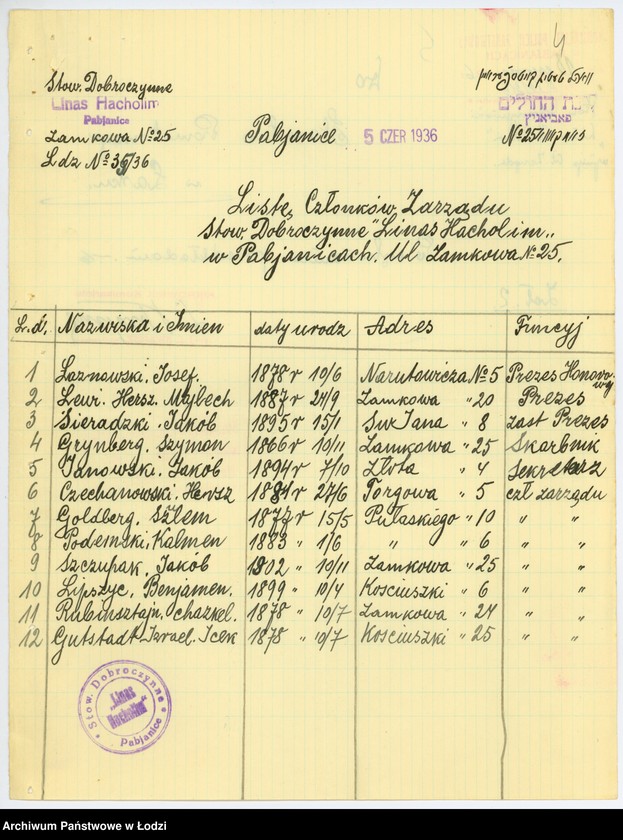 Stow. Dobroczynne
Linas Hacholim
Pabjanice
Zamkowa № 25
Ldz № 35/36
לינת החולים
פאביאניץ
Pabjanice 5 CZER 1936
4
Listę Członków Zarządu
Stow. Dobroczynne "Linas Hacholim"
w Pabjanicach. Ul Zamkowa № 25.
L.d. Nazwiska i Imien daty urodz Adres Funcyj
1 Łaznowski, Josef. 1878 r 10/6 Narutowicza № 5 Prezes Honorowy
2 Lewi. Hersz. Majbech 1887 r 24/9 Zamkowa " 20 Prezes
3 Sieradzki. Jakób 1895 r 15/1 Sw Jana " 8 zast Prezes
4 Grynberg. Szymon 1866 r 10/11 Zamkowa " 25 Skarbnik
5 Janowski. Jakób 1894 r 7/10 Złota " 4 Sekretarz
6 Czechanowski. Hersz 1884 r 27/6 Torgowa " 5 czł zarządu
7 Goldberg. Szlem 1877 r 15/5 Pułaskiego " 10 " "
8 Podemski, Kalmen 1883 " 1/6 " " 6 " "
9 Szczupak, Jakób 1902 " 10/11 Zamkowa " 25 " "
10 Lipszyc, Benjamen. 1899 " 10/4 Kosciuszki " 6 " "
11 Rubinsztajn, Ichazkel. 1878 " 10/7 Zamkowa " 24 " "
12 Gutstadt Izrael. Icek 1878 " 10/7 Kosciuszki " 25 " "
Stow. Dobroczynne
"Linas
Hacholim"
Pabjanice
Archiwum Państwowe w Łodzi